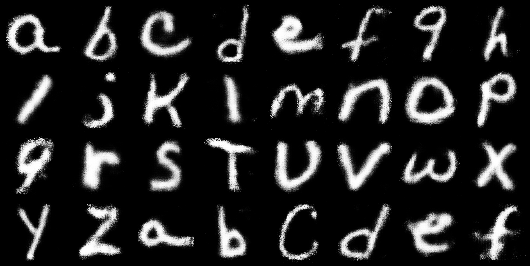 a b c d e f g h
i j K l m n O P
q r S T U V w X
y Z a b C d e f